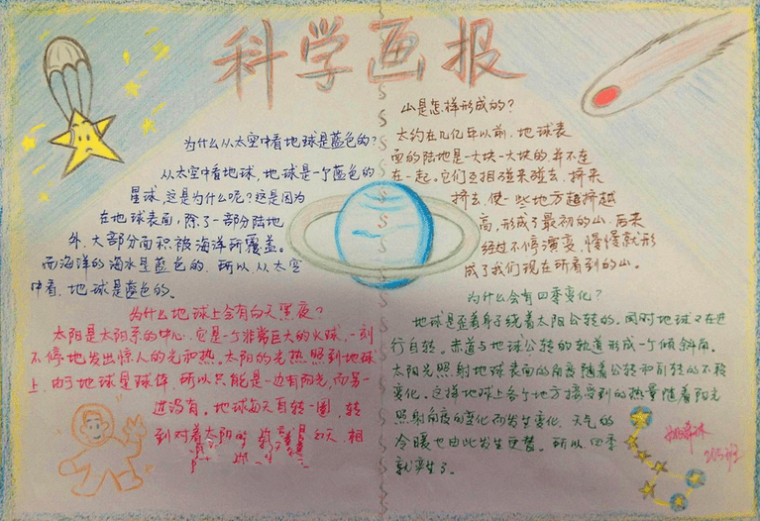 科学画报
为什么从太空中看地球是蓝色的?
从太空中看地球,地球是一个蓝色的
星球,这是为什么呢?这是因为
在地球表面,除了一部分陆地
外,大部分面积被海洋所覆盖。
而海洋的海水是蓝色的,所以,从太空
中看,地球是蓝色的。
为什么地球上会有白天黑夜?
太阳是太阳系的中心,它是一个非常巨大的火球,一刻
不停地发出惊人的光和热。太阳的光热照到地球
上,由于地球是球体,所以只能是一边有阳光,而另一
边没有。地球每天自转一圈,转
到对着太阳的 是白天,相
山是怎样形成的?
太约在几亿年以前,地球表
面的陆地是一大块一大块的并不连
在一起,它们互相碰来碰去,挤来
挤去,使一些地方越挤越
高,形成了最初的山,后来
经过不停演变,慢慢就形
成了我们现在所看到的山。
为什么会有四季变化?
地球是歪着身子绕着太阳公转的。同时地球又在进
行自转。赤道与地球公转的轨道形成一个倾斜角。
太阳光照射地球表面的角度随着公转和自转的不段
变化。这样地球上各个地方接受到的热量随着阳光
照射角度的变化而发生变化,天气的
冷暖也由此发生更替。所以,四季
就产生了。